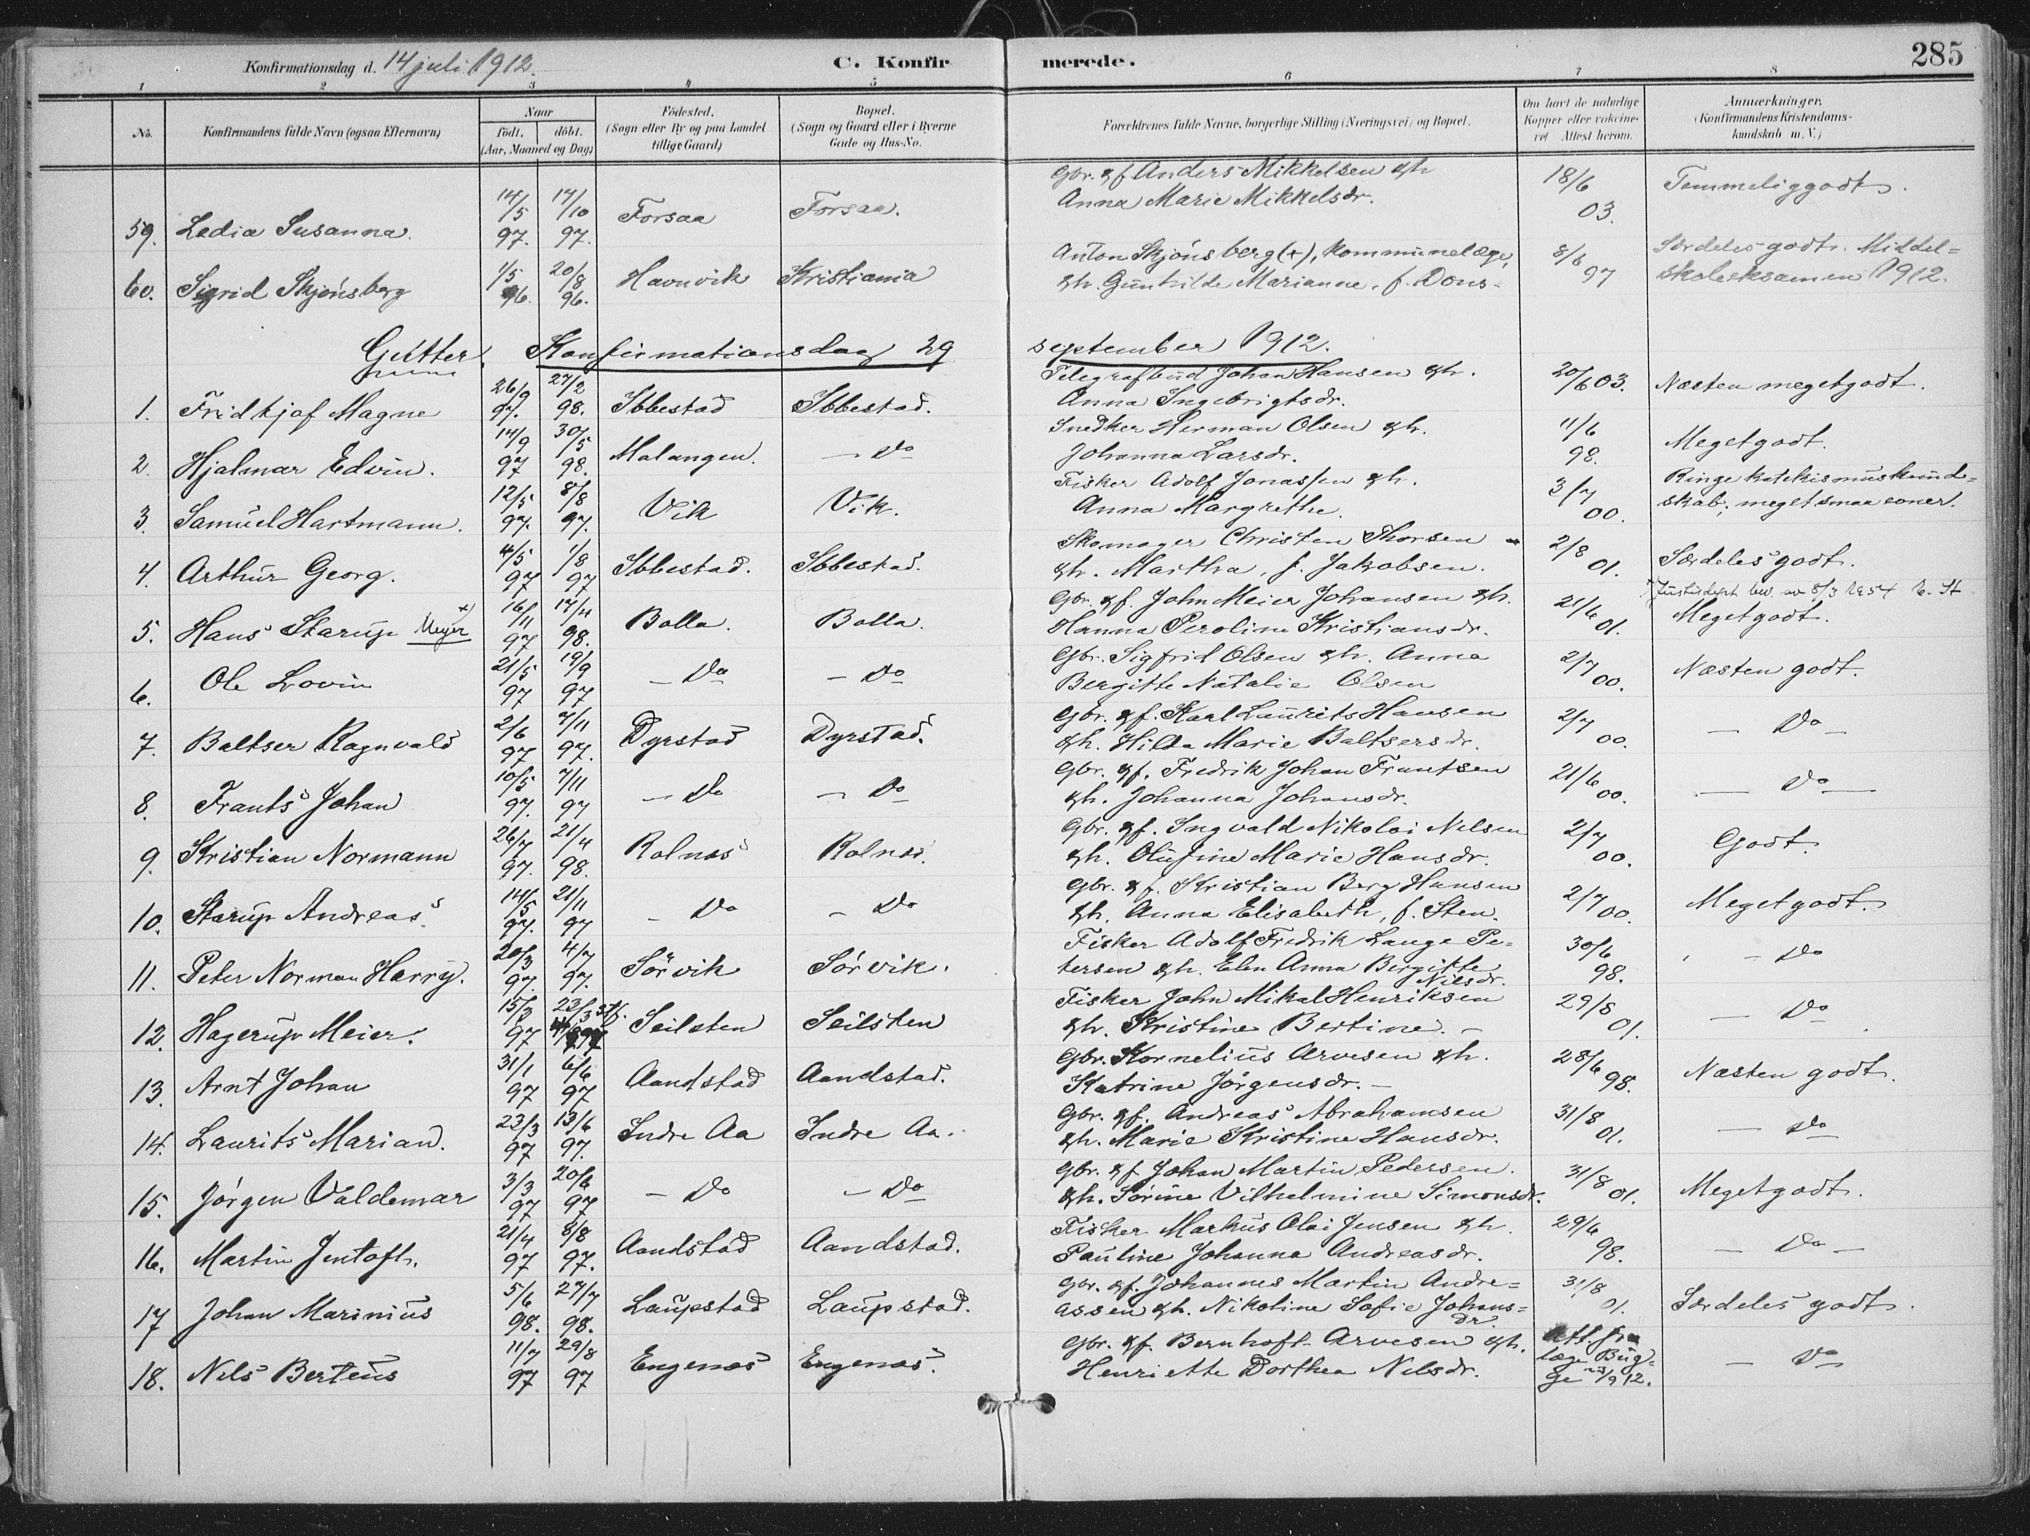 Konfirmationsdag d. 14 juli 1912. C. Konfirmerede. 285
1 2 3 4 5 6 7 8
No. Konfirmandens fulde Navn (ogsaa Efternavn) Naar födt. döbt. (Aar, Maaned og Dag) Födested. (Sogn eller By og paa Landet tillige Gaard) Bopæl. (Sogn og Gaard eller i Byerne Gade og Hus-No. Forældrenes fulde Navne, borgerlige Stilling (Næringsvei) og Bopæl. Om havt de naturlige Kopper eller vakcineret. Attest herom. Anmærkninger. (Konfirmandens Kristendomskundskab m. V.)
59. Ledia Susanna. 14/5 97. 17/10 97. Forsaa Forsaa. Gbr. & f. Anders Mikkelsen & h. Anna Marie Mikkelsdr. 18/6 03. Temmeliggodt.
60. Sigrid Skjönsberg 1/5 96. 20/8 96. Havnvik Kristiania Anton Skjönsberg (+), kommunelæge, & h. Gunhilde Marianne, f. Dons- 8/6 97 Særdeles godt. Middelskoleeksamen 1912.
Gutter. Konfirmationsdag 29 september 1912.
1. Fridtjof Magne 26/9 97. 27/2 98. Ibbestad Ibbestad. Telegrafbud Johan Hansen & h. Anna Ingebrigtsdr. 20/6 03. Næsten megetgodt.
2. Hjalmar Edvin. 14/9 97 30/5 98. Malangen. - Do Snedker Herman Olsen & h. Johanna Larsdr. 11/6 98. Megetgodt.
3. Samuel Hartmann. 12/5 97. 8/8 97. Vik Vik. Fisker Adolf Jonassen & h. Anna Margrethe. 3/7 00. Ringe katekismuskundskab; meget smaa evner.
4. Arthur Georg. 4/5 97 1/8 97 Ibbestad. Ibbestad. Skomager Christen Thorsen & h. Martha, f. Jakobsen. 2/8 01. Særdeles godt.
5. Hans Starup Meyer x) 16/11 97 17/4 98. Bolla. Bolla. Gbr. & f. John Meier Johansen & h. Hanna Peroline Kristiansdr. 21/6 01. Megetgodt.
6. Ole Lovin 21/5 97 19/9 97 - Do - Do Gbr. Sigfrid Olsen & h. Anna Bergitte Natalie Olsen 2/7 00. Næsten godt.
7. Baltser Ragnvald 2/6 97 7/11 97. Dyrstad Dyrstad. Gbr. & f. Karl Laurits Hansen & h. Hilda Marie Baltsersdr. 2/7 00. - Do -
8. Frants Johan 10/5 97. 7/11 97 - Do - Do Gbr. & f. Fredrik Johan Frantsen & h. Johanna Johansdr. 21/6 00. - Do -
9. Kristian Normann 26/7 97. 21/4 98. Rolnes Rolnes. Gbr. & f. Ingvald Nikolai Nilsen & h. Olufine Marie Hansdr. 2/7 00. Godt.
10. Starup Andreas 14/5 97. 21/11 97 - Do - Do Gbr. & f. Kristian Berg Hansen & h. Anna Elisabeth, f. Sten. 2/7 00. Megetgodt.
11. Peter Norman Harry. 20/3 97. 4/7 97. Sörvik Sörvik. Fisker Adolf Fredrik Lange Petersen & h. Elen Anna Bergitte Nilsdr. 30/6 98. - Do
12. Hagerup Meier. 15/3 97 23/3 Seilsten Seilsten Fisker John Mikal Henriksen & h. Kristine Bertine. - 29/8 01. - Do
13. Arnt Johan 31/1 97 6/6 97 Aandstad Aandstad. Gbr. Kornelius Arvesen & h. Katrine Jörgensdr. - 28/6 98. Næsten godt.
14. Laurits Marian. 23/3 97 13/6 97. Indre Aa Indre Aa. Gbr. & f. Andreas Abrahamsen & h. Marie Kristine Hansdr. 31/8 01. - Do
15. Jörgen Valdemar 3/3 97 20/6 97 - Do - Do Gbr. & f. Johan Martin Pedersen. & h. Sörine Vilhelmine Simonsdr. 31/8 01. Megetgodt.
16. Martin Jentoft. 21/4 97 8/8 97. Aandstad Aandstad. Fisker Markus Olai Jensen & h. Pauline Johanna Andreasdr. 29/6 98. - Do -
17 Johan Marinius 5/6 98. 27/7 98. Laupstad Laupstad. Gbr. & f. Johannes Martin Andreassen & h. Nikoline Sofie Johansdr. 31/8 01. Særdeles godt.
18. Nils Berteus 11/7 97 29/8 97 Engenes Engenes. Gbr. & f. Bernhoft Arvesen & h. Henriette Dorthea Nilsdr. Att. fra læge Bugge 9 12. - Do